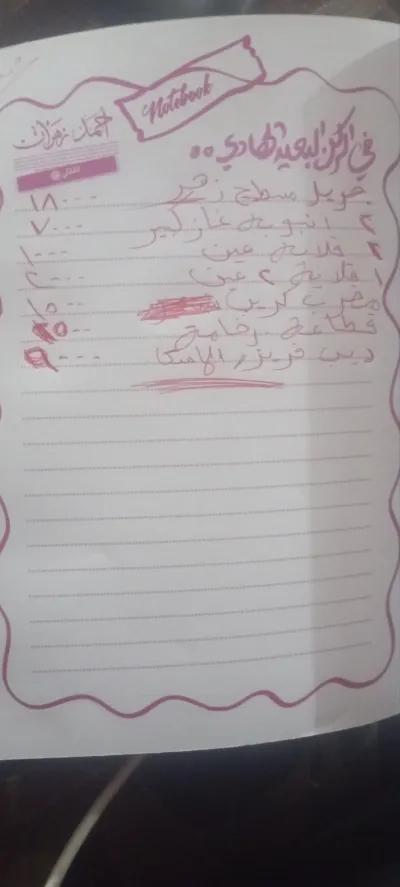 Notebook
أحمد زهران
في الركن البعيد الهادي..
جريل سطح زهر ١٨٠٠٠
٢ انبوبة غاز كبير ٧٠٠٠
٢ قلاية عين ١٠٠٠
١ قلاية ٢ عين ٢٠٠٠
مضرب كريب ١٥٠٠
قطاعة رخامة ٢٥٠٠
ديب فريزر الاسكا ٩٠٠٠